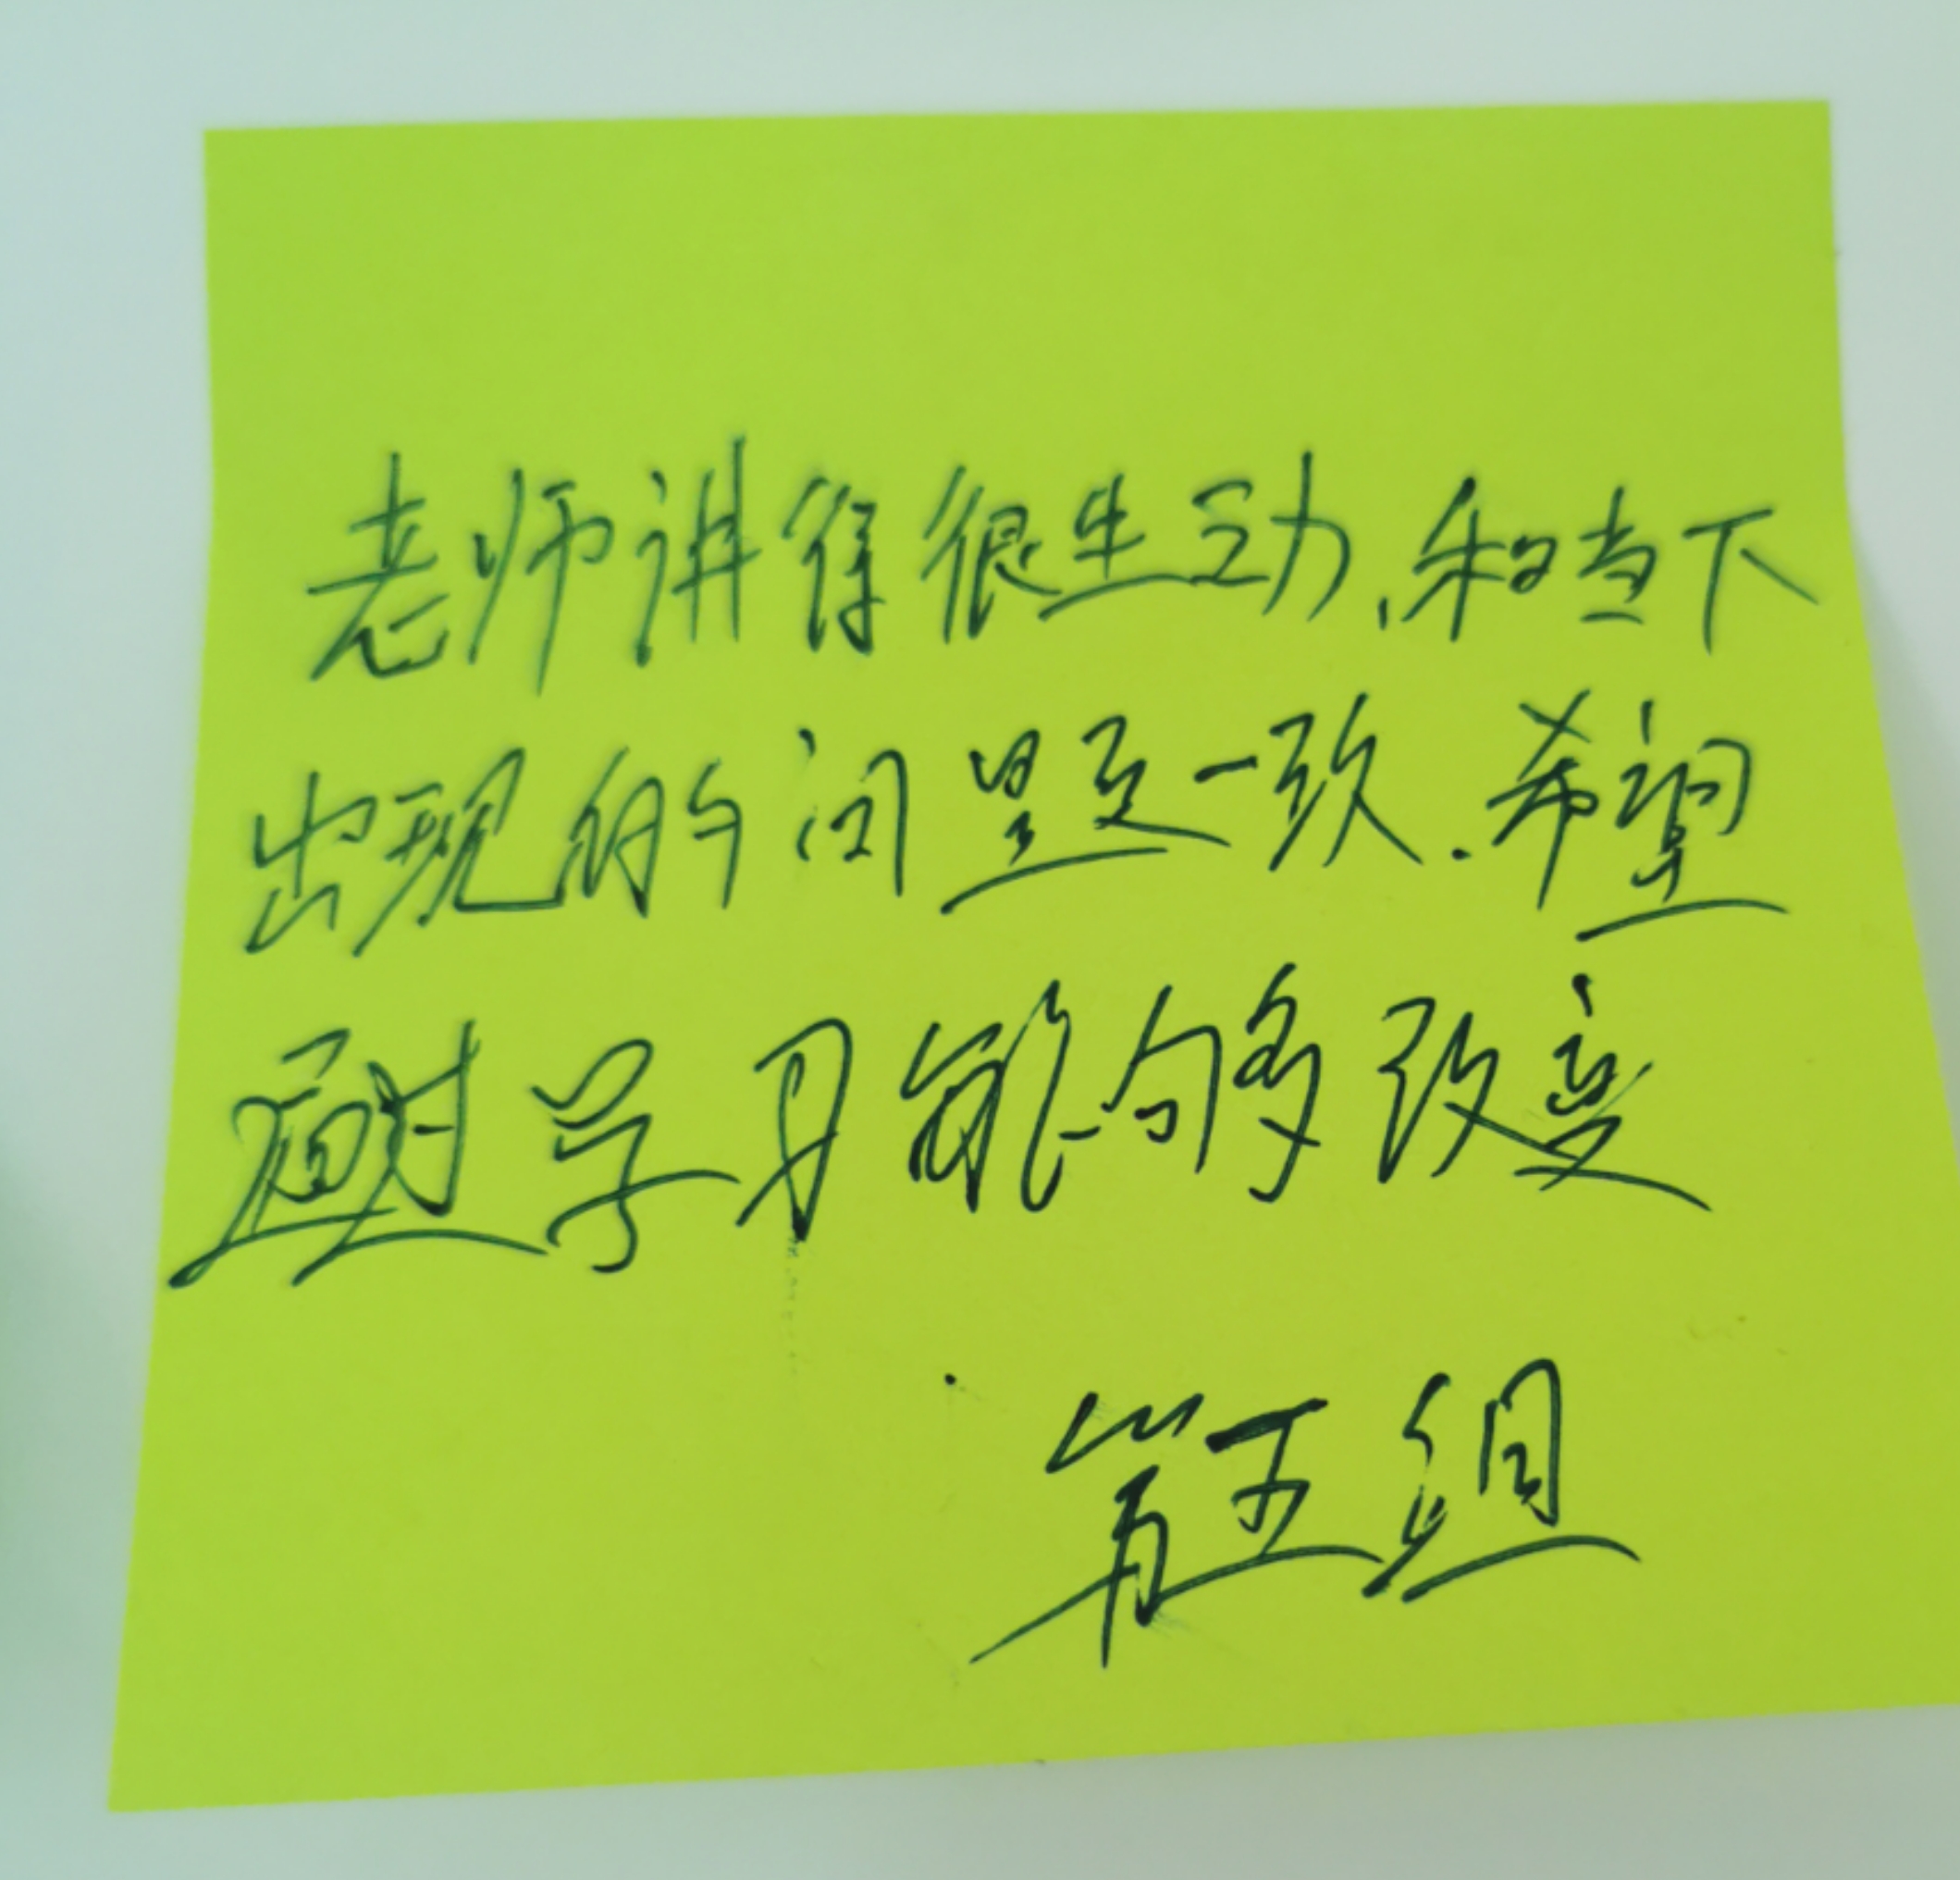 老师讲得很生动、和当下
出现的问题一致.希望
通过学习能够改变
第五组